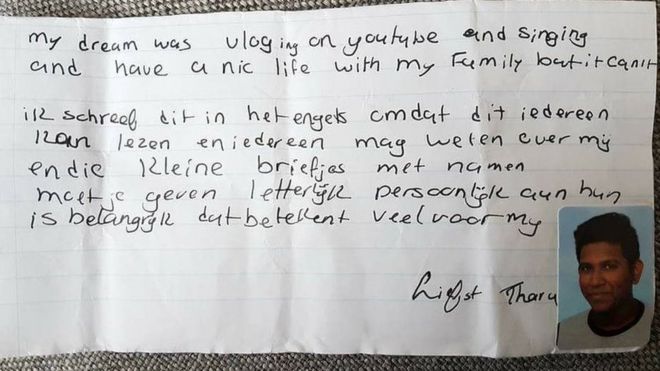 my dream was vloging on youtube and singing
and have a nic life with my Family but it canit
ik schreef dit in het engels omdat dit iedereen
kan lezen en iedereen mag weten over mij
en die kleine briefjes met namen
moet je geven letterlijk persoonlijk aan hun
is belangrijk dat betekent veel voor mij
Liefst Tharu